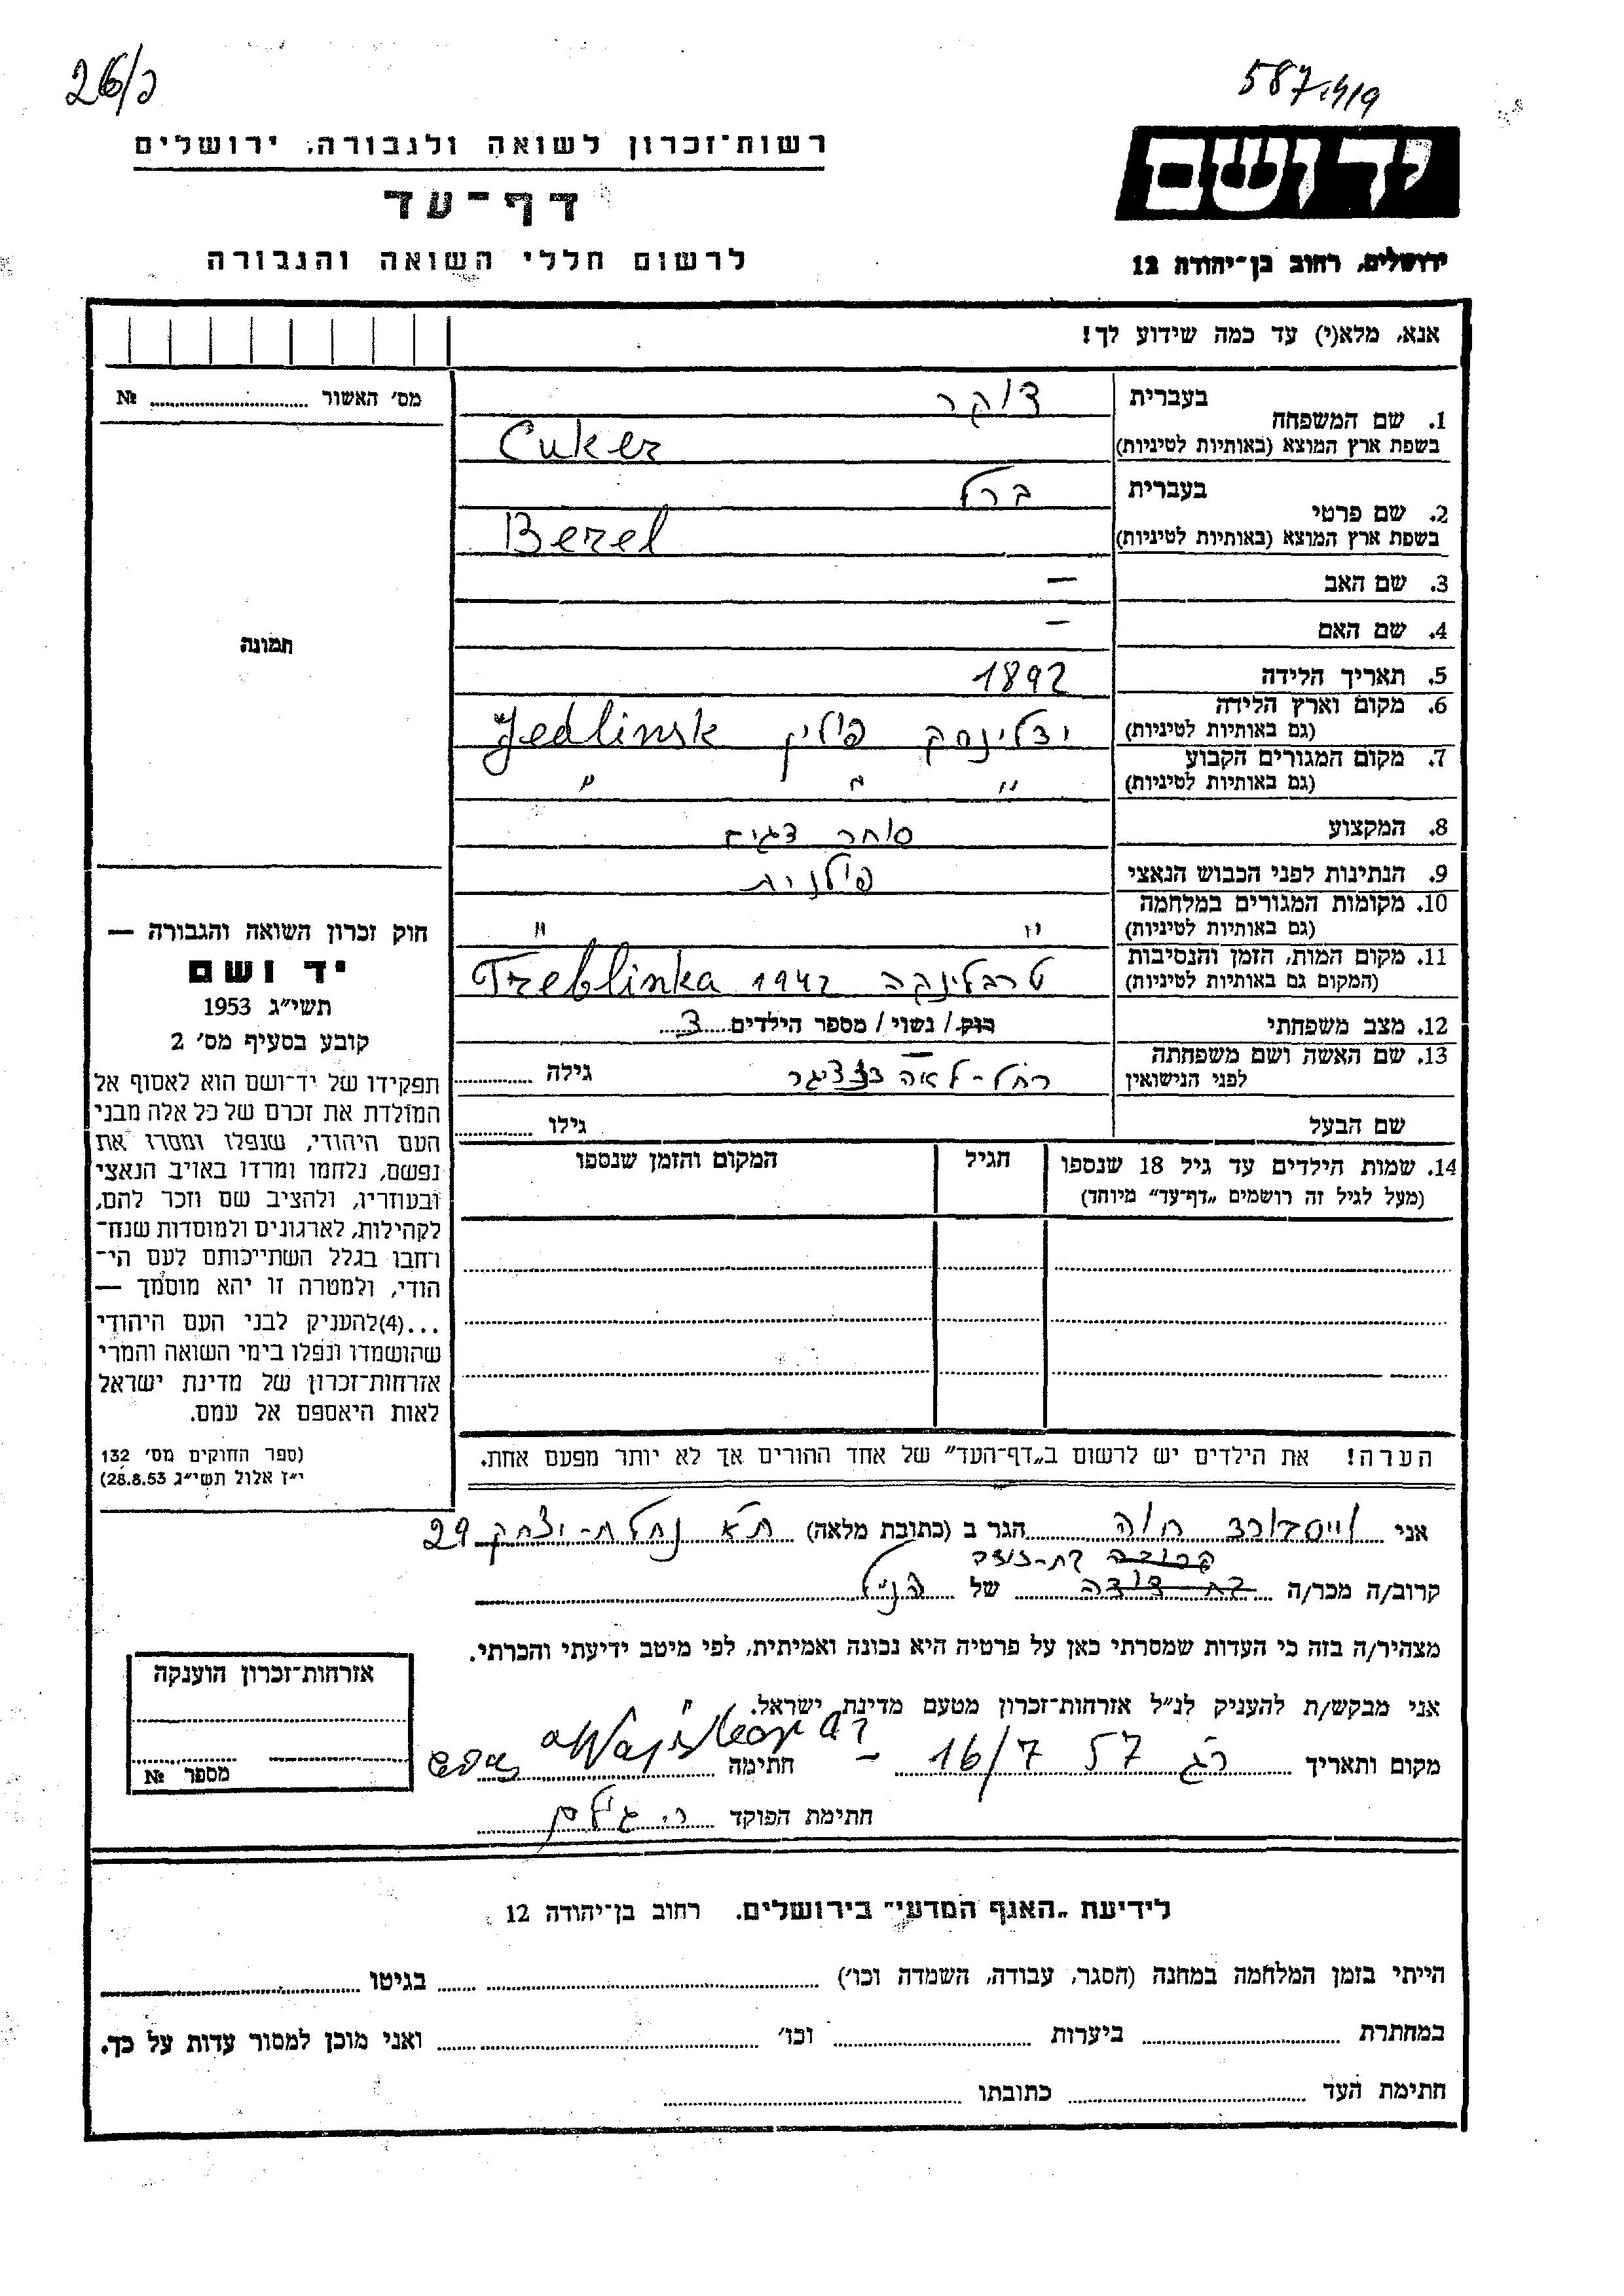 26/כ
587
רשות־זכרון לשואה ולגבורה, ירושלים
דף־עד
לרשום חללי השואה והגבורה
יד ושם
ירושלים, רחוב בן־יהודה 12
אנא, מלא(י) עד כמה שידוע לך!
מס׳ האשור № 
תמונה
1. שם המשפחה
בעברית צוקר
בשפת ארץ המוצא (באותיות לטיניות) Cuker
2. שם פרטי
בעברית ברל
בשפת ארץ המוצא (באותיות לטיניות) Berel
3. שם האב —
4. שם האם —
5. תאריך הלידה 1892
6. מקום וארץ הלידה
(גם באותיות לטיניות) ידלינסק פולין Jedlinsk
7. מקום המגורים הקבוע
(גם באותיות לטיניות) " " "
8. המקצוע סוחר דגים
9. הנתינות לפני הכבוש הנאצי פולנית
10. מקומות המגורים במלחמה
(גם באותיות לטיניות) " "
11. מקום המות, הזמן והנסיבות
(המקום גם באותיות לטיניות) טרבלינקה 1942 Treblinka
12. מצב משפחתי רוק / נשוי / מספר הילדים 3
13. שם האשה ושם משפחתה
לפני הנישואין רחל-לאה גילה
שם הבעל גילו
14. שמות הילדים עד גיל 18 שנספו
(מעל לגיל זה רושמים „דף־עד״ מיוחד)
הגיל
המקום והזמן שנספו
הערה! את הילדים יש לרשום ב„דף־העד״ של אחד ההורים אך לא יותר מפעם אחת.
חוק זכרון השואה והגבורה —
יד ושם
תשי״ג 1953
קובע בסעיף מס׳ 2
תפקידו של יד־ושם הוא לאסוף אל
המולדת את זכרם של כל אלה מבני
העם היהודי, שנפלו ומסרו את
נפשם, נלחמו ומרדו באויב הנאצי
ובעוזריו, ולהציב שם וזכר להם,
לקהילות, לארגונים ולמוסדות שנח־
רחבו בגלל השתייכותם לעם הי־
הודי, ולמטרה זו יהא מוסמך —
...(4)להעניק לבני העם היהודי
שהושמדו ונפלו בימי השואה והמרי
אזרחות־זכרון של מדינת ישראל
לאות היאספם אל עמם.
(ספר החוקים מס׳ 132
י״ז אלול תשי״ג 28.8.53)
אני חוה הגר ב (כתובת מלאה) ת״א נחלת-יצחק 29
קרובה בת-דודה
קרוב/ה מכר/ה בת דודה של הנ״ל
מצהיר/ה בזה כי העדות שמסרתי כאן על פרטיה היא נכונה ואמיתית, לפי מיטב ידיעתי והכרתי.
אני מבקש/ת להעניק לנ״ל אזרחות־זכרון מטעם מדינת ישראל.
מקום ותאריך רג 16/7 57 — חתימה
חתימת הפוקד
אזרחות־זכרון הוענקה
מספר №
לידיעת „האגף המדעי״ בירושלים. רחוב בן־יהודה 12
הייתי בזמן המלחמה במחנה (הסגר, עבודה, השמדה וכו׳) בגיטו
במחתרת ביערות וכו׳ ואני מוכן למסור עדות על כך.
חתימת העד כתובתו